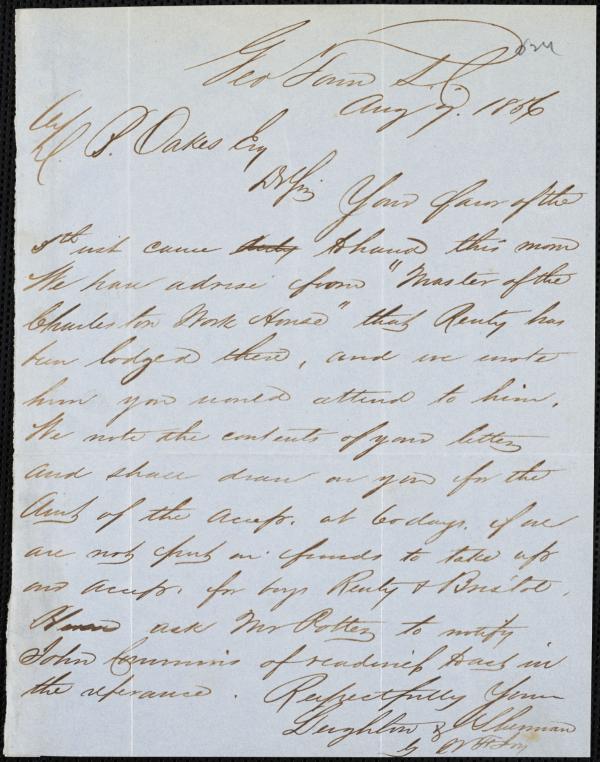 Geo Town S. C
Aug 9. 1856
Z. B. Oakes Esq
Dr Sir Your favor of the
5th inst came duly to hand this morn
We have advise from "Master of the
Charleston Work House" that Renty has
been lodged there, and we wrote
him you would attend to him.
We note the contents of your letter
and shall draw on you for the
Amt of the accep. at 60 days, if we
are not put in funds to take up
our accep. for boys Renty & Bristol.
ask Mr Potter to notify
John Cummins of
the referance. Respectfully Yours
Leighton & Sherman